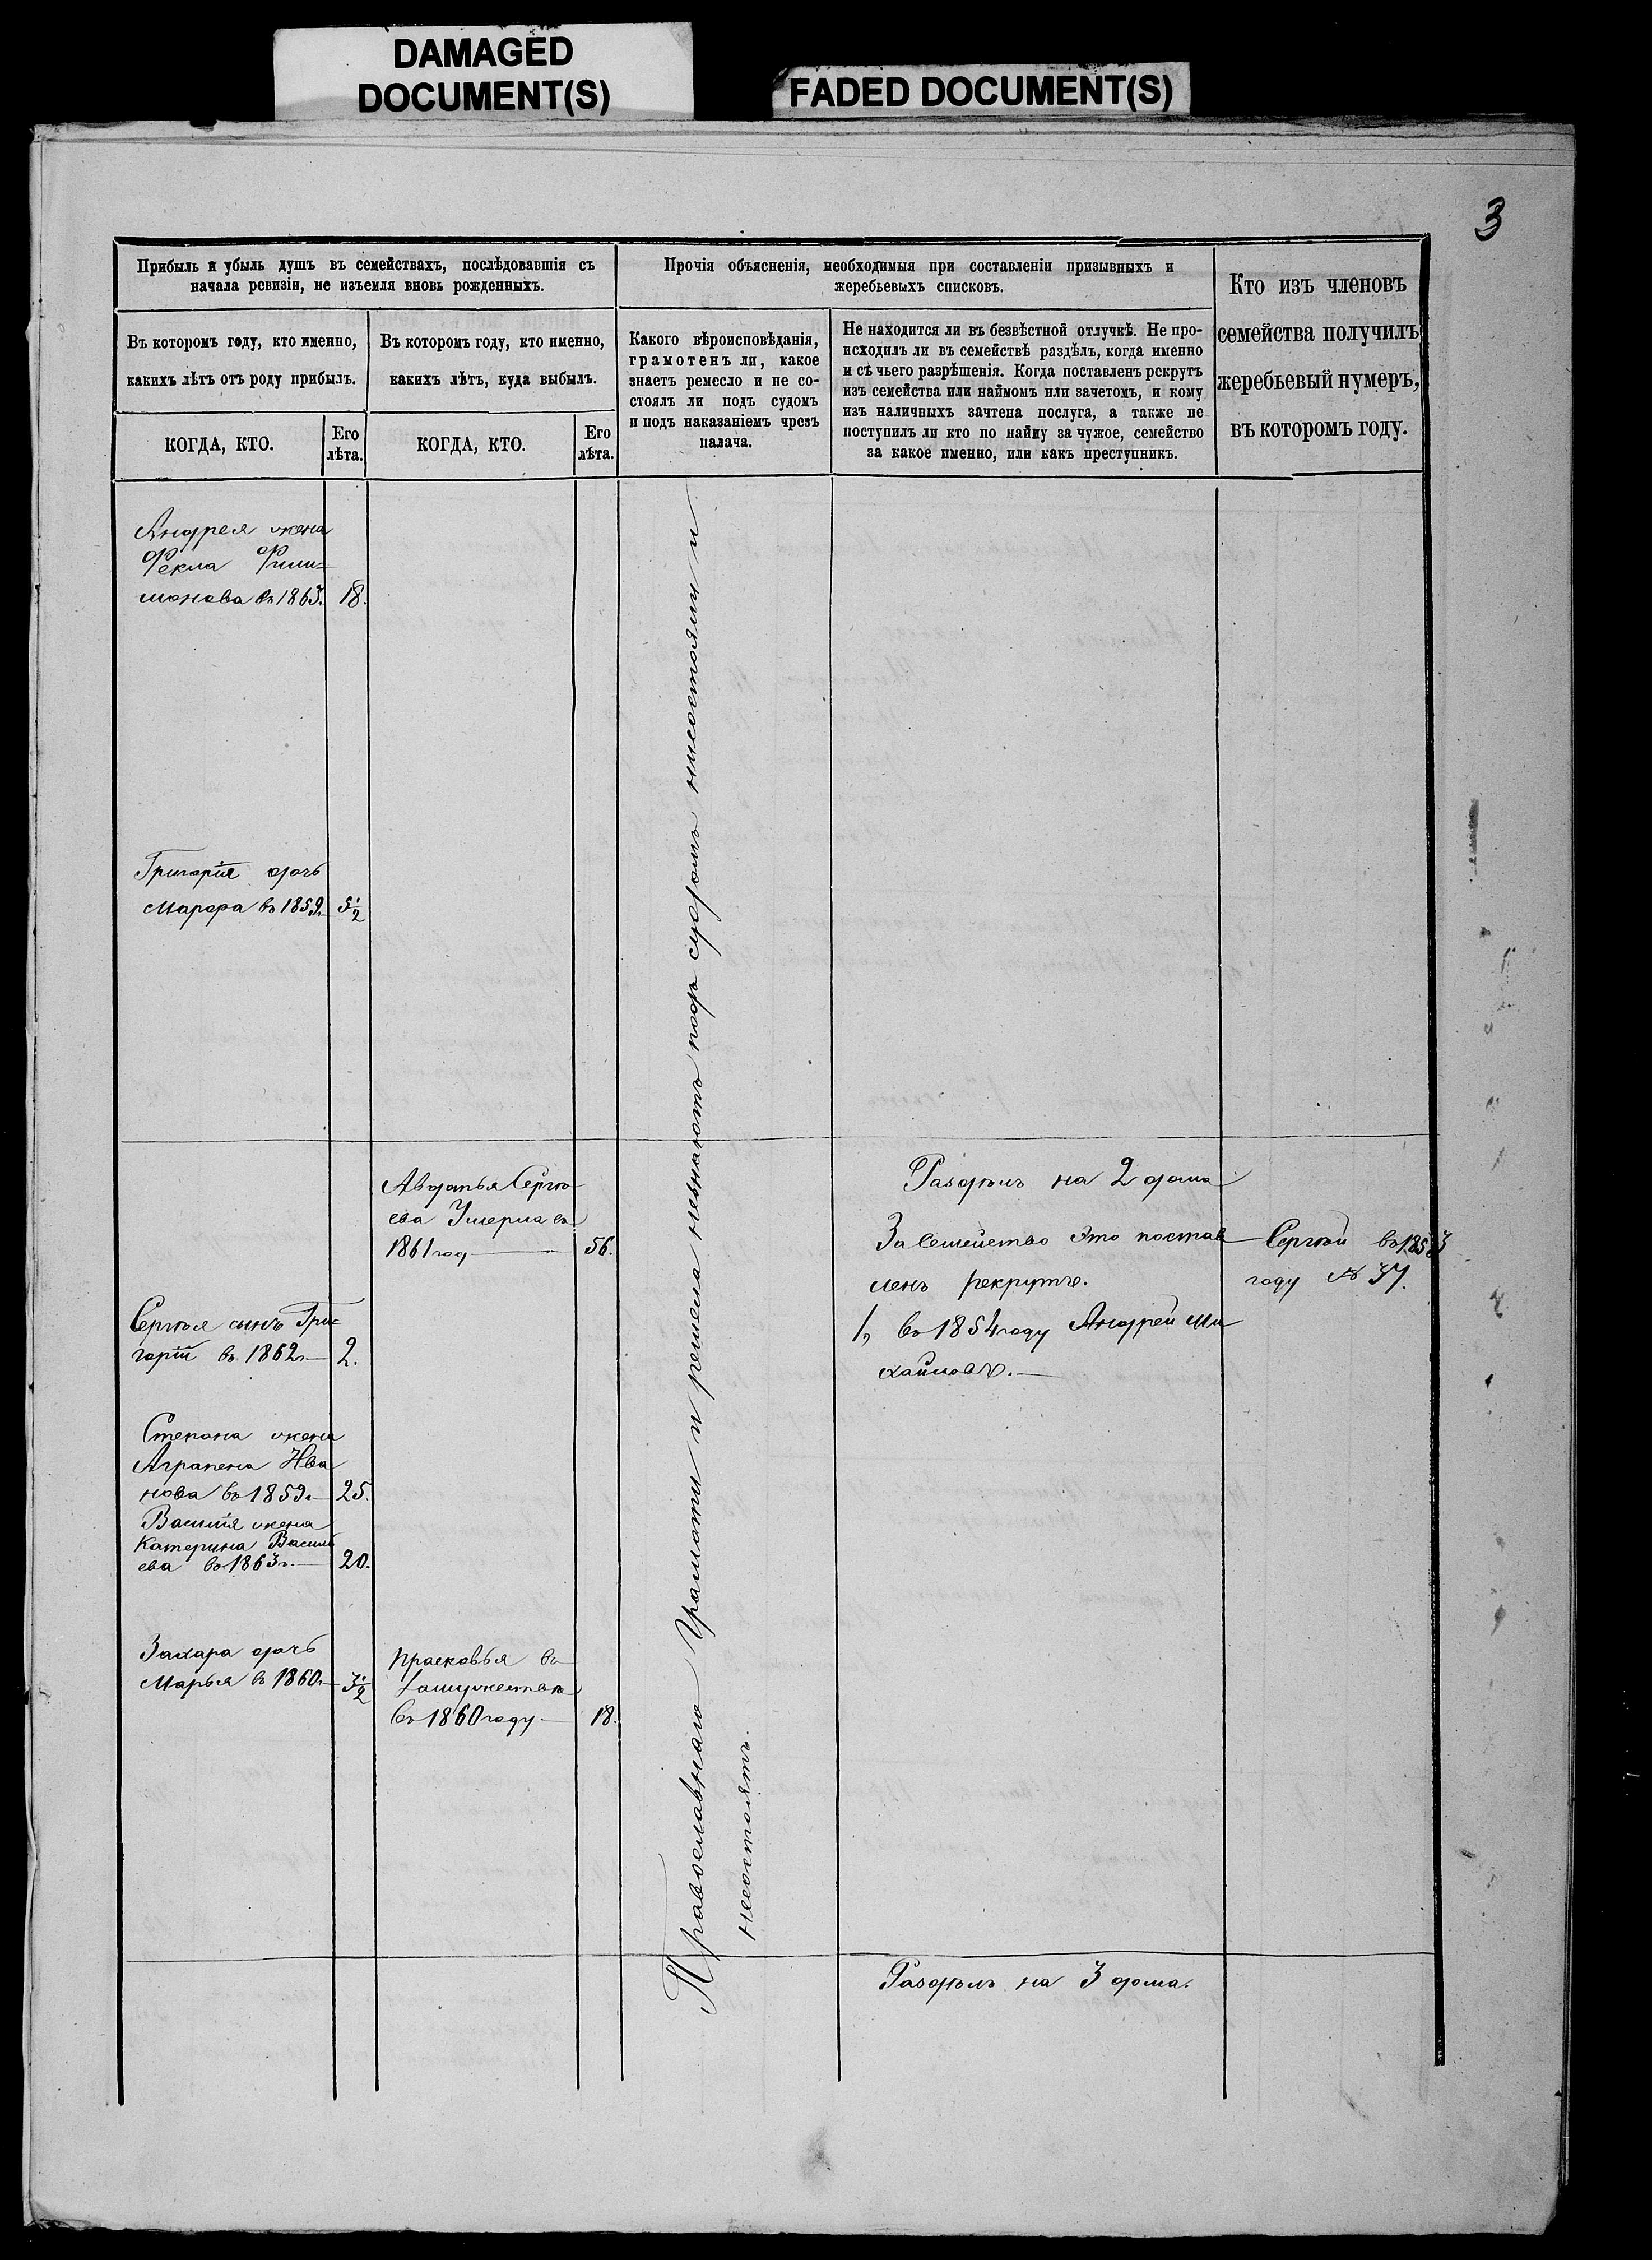 DAMAGED
DOCUMENT(S)
FADED DOCUMENT(S)
3
Прибыль и убыль душъ въ семействахъ, послѣдовавшія съ
начала ревизіи, не изъемля вновь рожденныхъ.
Въ которомъ году, кто именно,
какихъ лѣтъ отъ роду прибылъ.
КОГДА, КТО.
Его
лѣта.
Въ которомъ году, кто именно,
какихъ лѣтъ, куда выбылъ.
КОГДА, КТО.
Его
лѣта.
Прочія объясненія, необходимыя при составленіи призывныхъ и
жеребьевыхъ списковъ.
Какого вѣроисповѣданія,
грамотенъ ли, какое
знаетъ ремесло и не со-
стоялъ ли подъ судомъ
и подъ наказаніемъ чрезъ
палача.
Не находится ли въ безвѣстной отлучкѣ. Не про-
исходилъ ли въ семействѣ раздѣлъ, когда именно
и съ чьего разрѣшенія. Когда поставленъ рекрутъ
изъ семейства или наймомъ или зачетомъ, и кому
изъ наличныхъ зачтена послуга, а также не
поступилъ ли кто по найму за чужое, семейство
за какое именно, или какъ преступникъ.
Кто изъ членовъ
семейства получилъ
жеребьевый нумеръ,
въ которомъ году.
Андрея жена
Фекла Фили=
монова въ 1863. 18.
Григорія дочь
Марфа въ 1859г 5 1/2
Авдотья Сергѣ
ева Умерла въ
1861 год — 56.
Сергѣя сынъ Гри=
горій въ 1862г — 2.
Степана жена
Аграпена Ива
нова въ 1859г — 25.
Василія жена
Катерина Василь
ева въ 1863г. — 20.
Захара дочь
Марья въ 1860г — 3 1/2
Прасковья въ
Замужество
въ 1860 году — 18.
Православнаго Грамоти и ремесла незнаютъ подъ судомъ нисостояли и
несостоятъ.
Раздѣлъ на 2 дома
За Семейство Это постав
ленъ рекрутъ.
1, въ 1854 году Андрей Ми
хайловъ. —
Сергѣй въ 1853
году № 37.
Раздѣлъ на 3 дома.